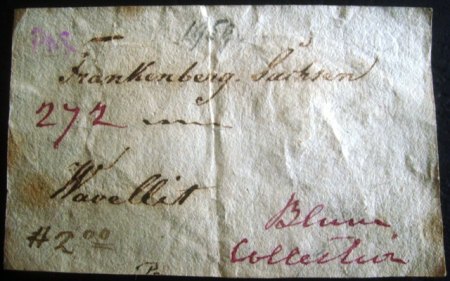 1954
Frankenberg. Sachsen
272
Wavellit
#2.00
Blum
Collection